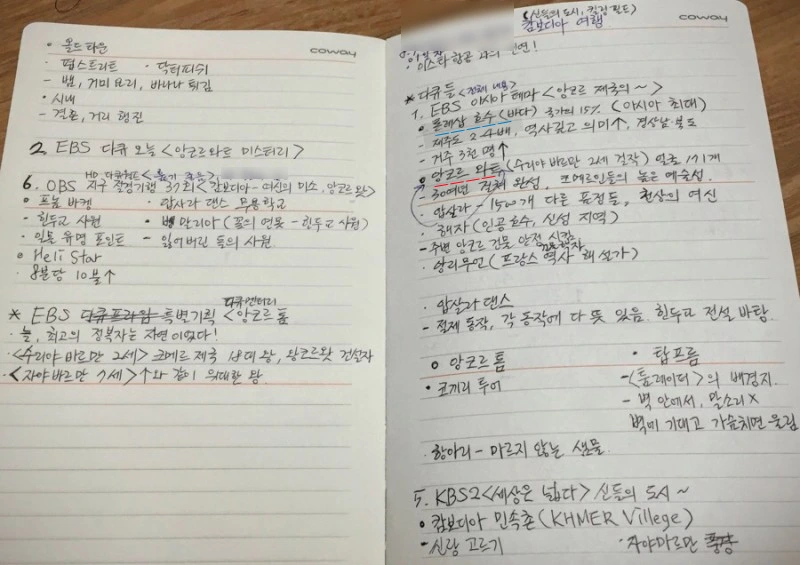 coway
• 올드 타운
- 펍스트리트 • 닥터피쉬
- 뱀, 거미 요리, 바나나 튀김
• 시내
- 결혼, 거리 행진
2. EBS 다큐 오늘 <앙코르와트 미스터리>
6. OBS 지구 절경기행 37회 <캄보디아 - 여신의 미소, 앙코르 왓>
• 프놈 바켕 • 압사라 댄스 무용학교
- 힌두교 사원 • 벵 말리아 (꽃의 연못 - 힌두교 사원)
- 일몰 유명 포인트 - 잃어버린 돌의 사원
• Heli Star
- 8분당 10불↑
다큐멘터리
* EBS 특별기획 <앙코르 톰
• 늘, 최고의 정복자는 자연이었다!
• <수리야 바르만 2세> 크메르 제국 18대 왕, 앙코르왓 건설자
• <자야 바르만 7세> ↑와 같이 위대한 왕.
(신들의 도시, 킬링필드)
캄보디아 여행
coway
* 다큐들 <전체 내용>
1. EBS 아시아 테마 <앙코르 제국의 ~>
• 톤레삽 호수 (바다) 국가의 15% (아시아 최대)
- 제주도 2-4배, 역사깊고 의미↑, 경상남·북도
- 거주 3천 명↑
• 앙코르 와트 (수리야 바르만 2세 걸작)
- 30여년 전체 완성, 크메르인들의 높은 예술성.
• 압살라 - 1500개 다른 표정들, 천상의 여신
• 해자 (인공호수, 신성 지역)
- 주변 앙코르 건물 안정 시킴
• 앙리무언 (프랑스 역사 해설가)
• 압살라 댄스
- 절제 동작, 각 동작에 다 뜻 있음. 힌두교 전설 바탕.
• 앙코르 톰 • 탑프롬
• 코끼리 투어 - <툼레이더>의 배경지.
- 벽 안에서, 말소리 X
벽에 기대고 가슴치면 울림
• 항아리 - 마르지 않는 샘물.
5. KBS2 <세상은 넓다> 신들의 도시 ~
• 캄보디아 민속촌 (KHMER Villege)
- 신랑 고르기 • 자야바르만